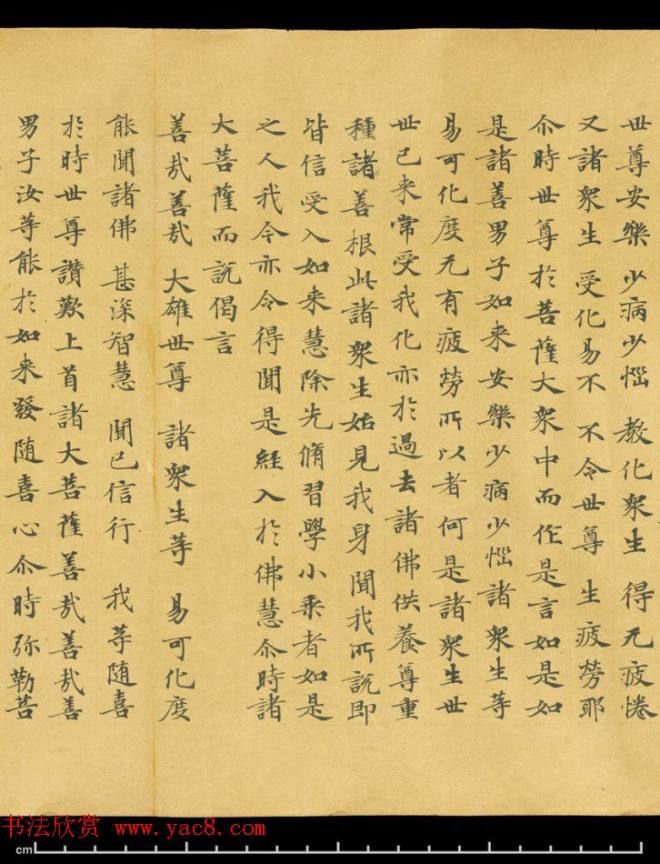 世尊安樂 少病少惱 教化衆生 得无疲惓
又諸衆生 受化易不 不令世尊 生疲勞耶
尒時世尊於菩薩大衆中而作是言如是如
是諸善男子如来安樂少病少惱諸衆生等
易可化度无有疲勞所以者何是諸衆生世
世已来常受我化亦於過去諸佛供養尊重
種諸善根此諸衆生始見我身聞我所說即
皆信受入如来慧除先脩習學小乗者如是
之人我今亦令得聞是經入於佛慧尒時諸
大菩薩而說偈言
善㢤善㢤 大雄世尊 諸衆生等 易可化度
能聞諸佛 甚深智慧 聞已信行 我等随喜
於時世尊讚歎上首諸大菩薩善㢤善㢤善
男子汝等能於如来發随喜心尒時弥勒菩
书法欣赏 www.yac8.com
cm